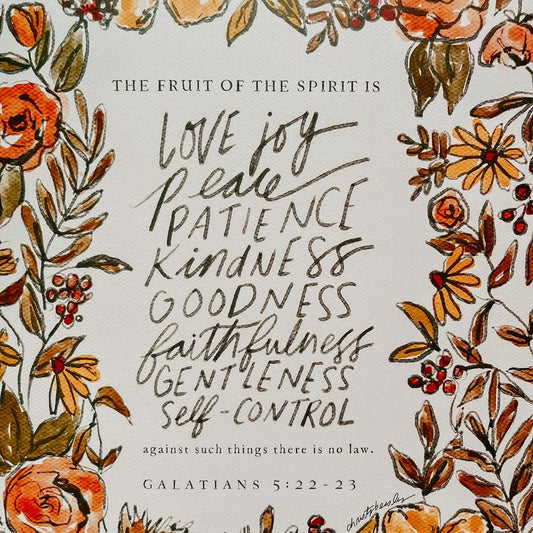 THE FRUIT OF THE SPIRIT IS
LOVE joy
Peace
PATIENCE
KiNDNESS
GOODNESS
faithfulness
GENTLENESS
Self-CONTROL
against such things there is no law.
GALATIANS 5:22-23